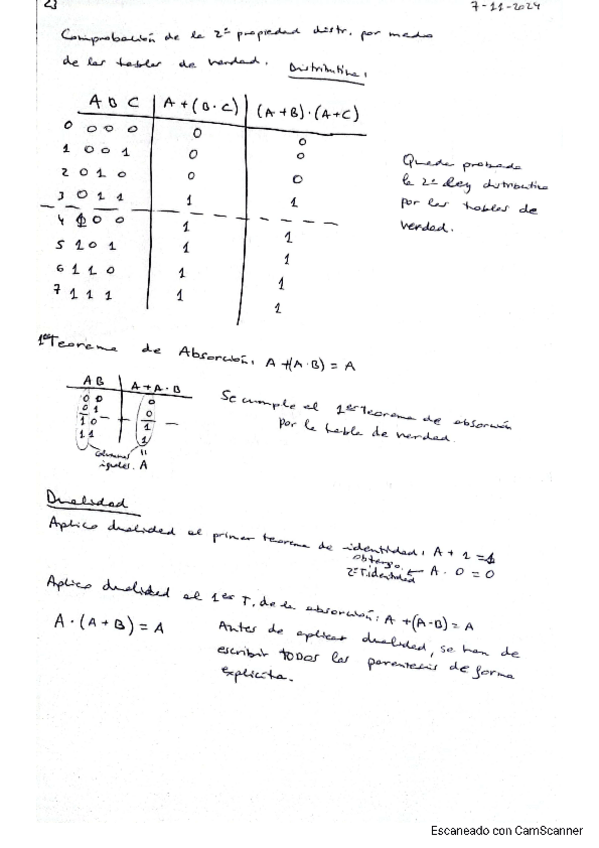 23
7-11-2024
Comprobación de la 2ª propiedad distr. por medio
de las tablas de verdad. Distributiva:
A B C | A+(B·C) | (A+B)·(A+C)
0 0 0 0 | 0 | 0
1 0 0 1 | 0 | 0
2 0 1 0 | 0 | 0
3 0 1 1 | 1 | 1
4 1 0 0 | 1 | 1
5 1 0 1 | 1 | 1
6 1 1 0 | 1 | 1
7 1 1 1 | 1 | 1
Queda probada
la 2ª ley distributiva
por las tablas de
verdad.
1er Teorema de Absorción: A+(A·B) = A
A B | A+A·B
0 0 | 0
0 1 | 0
1 0 | 1
1 1 | 1
columnas
iguales. A
Se cumple el 1er Teorema de absorción
por la tabla de verdad.
Dualidad
Aplico dualidad al primer teorema de identidad: A + 1 = 1
obtengo
2º T. identidad ← A · 0 = 0
Aplico dualidad al 1er T. de la absorción: A +(A·B) = A
A · (A + B) = A
Antes de aplicar dualidad, se han de
escribir TODOS los parentesis de forma
explicita.
Escaneado con CamScanner